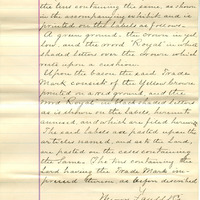 the box containing the same, as shown
in the accompanying which are
printed on the labels as follows.
A green ground, the crown in yel
low, and the word "Royal" in which
shaded letters over the crown which
rests upon a cushion.
Upon the bacon the said Trade
Mark consists of the yellow crown
printed on a red ground, and the
word Royal in black shaded letters
as is shown on the labels, hereunto
annexed, and which are filed herewith.
The said labels are pasted upon the
articles named, and at the end,
are pasted on the cases containing
the same. The box containing the
Lard having the Trade Mark im-
pressed thereon as before described